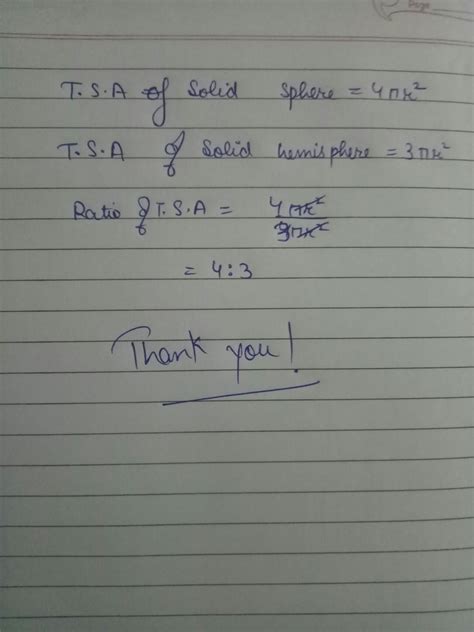 T.S.A of Solid sphere = 4πr²
T.S.A of Solid hemisphere = 3πr²
Ratio of T.S.A = 4πr²
3πr²
= 4:3
Thank you!